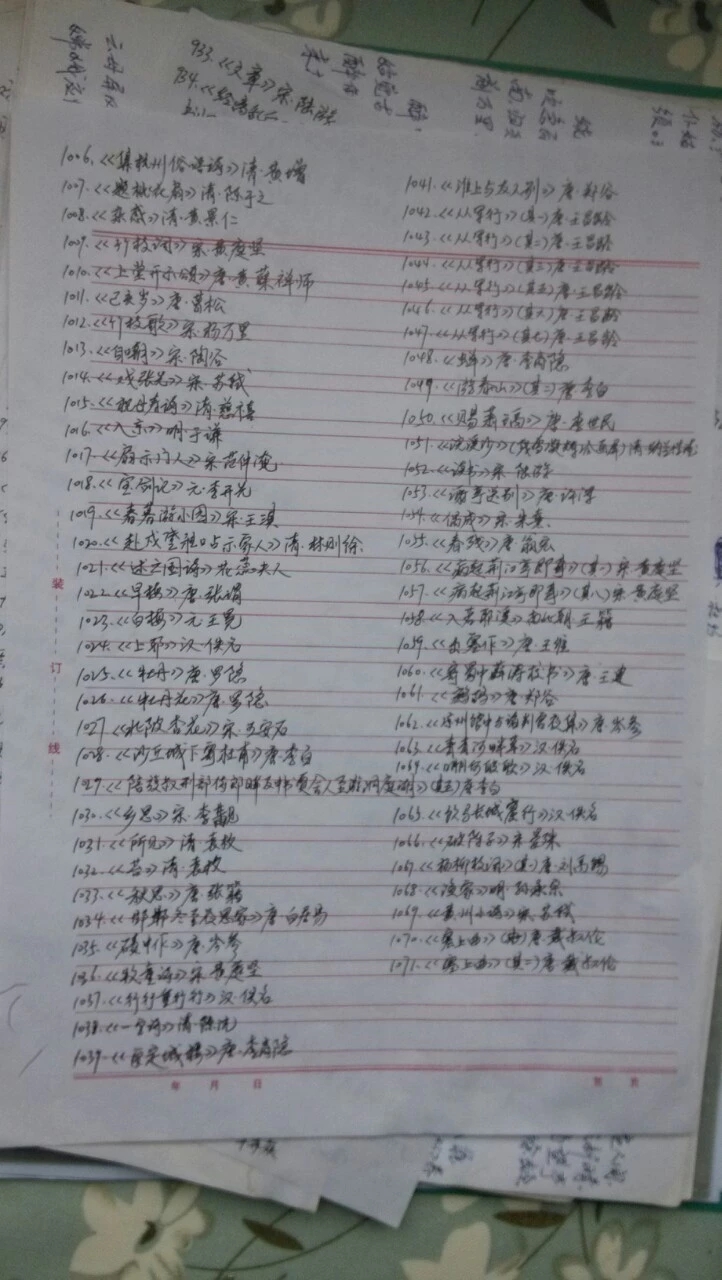 933.<<文章>>宋·陆游
1006.<<集杭州俗语诗>>清·黄增
1007.<<题桃花扇>>清·陈于之
1008.<<杂感>>清·黄景仁
1009.<<竹枝词>>宋·黄庭坚
1010.<<上堂开示颂>>唐·黄蘖禅师
1011.<<己亥岁>>唐·曹松
1012.<<竹枝歌>>宋·杨万里
1013.<<自嘲>>宋·陶谷
1014.<<戏张先>>宋·苏轼
1015.<<祝母寿诗>>清·慈禧
1016.<<入京>>明·于谦
1017.<<扇示门人>>宋·范仲淹
1018.<<宝剑记>>元·李开先
1019.<<春暮游小园>>宋·王淇
1020.<<赴戍登程口占示家人>>清·林则徐
1021.<<述亡国诗>>花蕊夫人
1022.<<早梅>>唐·张谓
1023.<<白梅>>元·王冕
1024.<<上邪>>汉·佚名
1025.<<牡丹>>唐·罗隐
1026.<<牡丹花>>唐·罗隐
1027.<<北陂杏花>>宋·王安石
1028.<<沙丘城下寄杜甫>>唐·李白
1029.<<陪族叔刑部侍郎晔及中书贾舍人至游洞庭湖>>(其五)唐·李白
1030.<<乡思>>宋·李觏
1031.<<所见>>清·袁枚
1032.<<苔>>清·袁枚
1033.<<秋思>>唐·张籍
1034.<<邯郸冬至夜思家>>唐·白居易
1035.<<碛中作>>唐·岑参
1036.<<牧童诗>>宋·黄庭坚
1037.<<行行重行行>>汉·佚名
1038.<<一字诗>>清·陈沆
1039.<<安定城楼>>唐·李商隐
1041.<<淮上与友人别>>唐·郑谷
1042.<<从军行>>(其一)唐·王昌龄
1043.<<从军行>>(其二)唐·王昌龄
1044.<<从军行>>(其三)唐·王昌龄
1045.<<从军行>>(其五)唐·王昌龄
1046.<<从军行>>(其六)唐·王昌龄
1047.<<从军行>>(其七)唐·王昌龄
1048.<<蝉>>唐·李商隐
1049.<<游泰山>>(其三)唐·李白
1050.<<赐萧瑀>>唐·李世民
1051.<<浣溪沙>>(残雪凝辉冷画屏)清·纳兰性德
1052.<<读书>>宋·陆游
1053.<<谢亭送别>>唐·许浑
1054.<<偶成>>宋·朱熹
1055.<<春残>>唐·翁宏
1056.<<病起荆江亭即事>>(其一)宋·黄庭坚
1057.<<病起荆江亭即事>>(其八)宋·黄庭坚
1058.<<入若耶溪>>南北朝·王籍
1059.<<出塞作>>唐·王维
1060.<<寄蜀中薛涛校书>>唐·王建
1061.<<鹧鸪>>唐·郑谷
1062.<<凉州馆中与诸判官夜集>>唐·岑参
1063.<<青青河畔草>>汉·佚名
1064.<<明月何皎皎>>汉·佚名
1065.<<饮马长城窟行>>汉·佚名
1066.<<破阵子>>宋·晏殊
1067.<<杨柳枝词>>(其一)唐·刘禹锡
1068.<<渔家>>明·孙承宗
1069.<<黄州小诗>>宋·苏轼
1070.<<塞上曲>>(其一)唐·戴叔伦
1071.<<塞上曲>>(其二)唐·戴叔伦
装
订
线
年 月 日
第 页